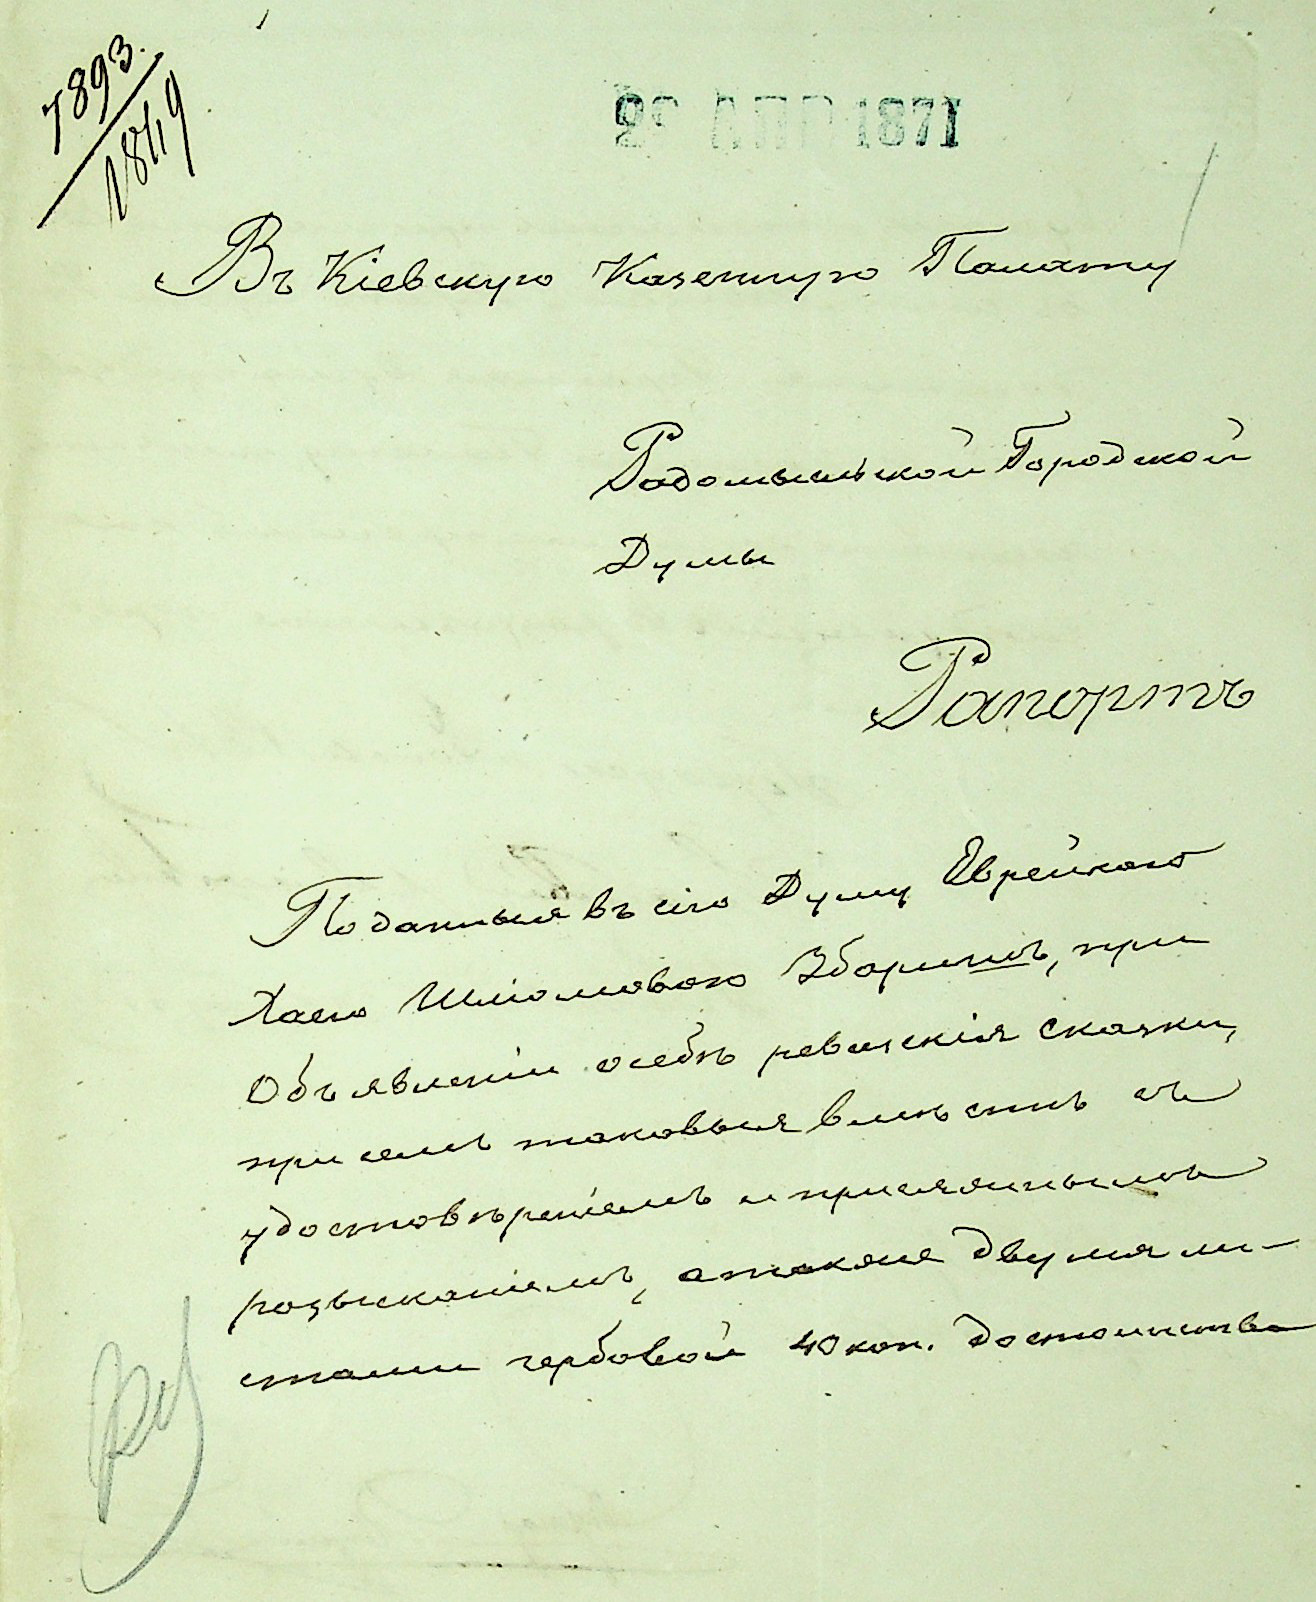 7893.
18 4/19
АПР 1871
Въ Кіевскую Казенную Палату
Радомысльской Городской
Думы
Рапортъ
Поданныя въ сію Думу Еврейкою
Хаею Шліомовою при
Объявленіи особѣ ревизскія сказки,
при семъ таковыя вмѣстѣ съ
удостовѣреніемъ и присяжнымъ
розысканіемъ, также двумя ли-
стами гербовой 40 коп. достоинства